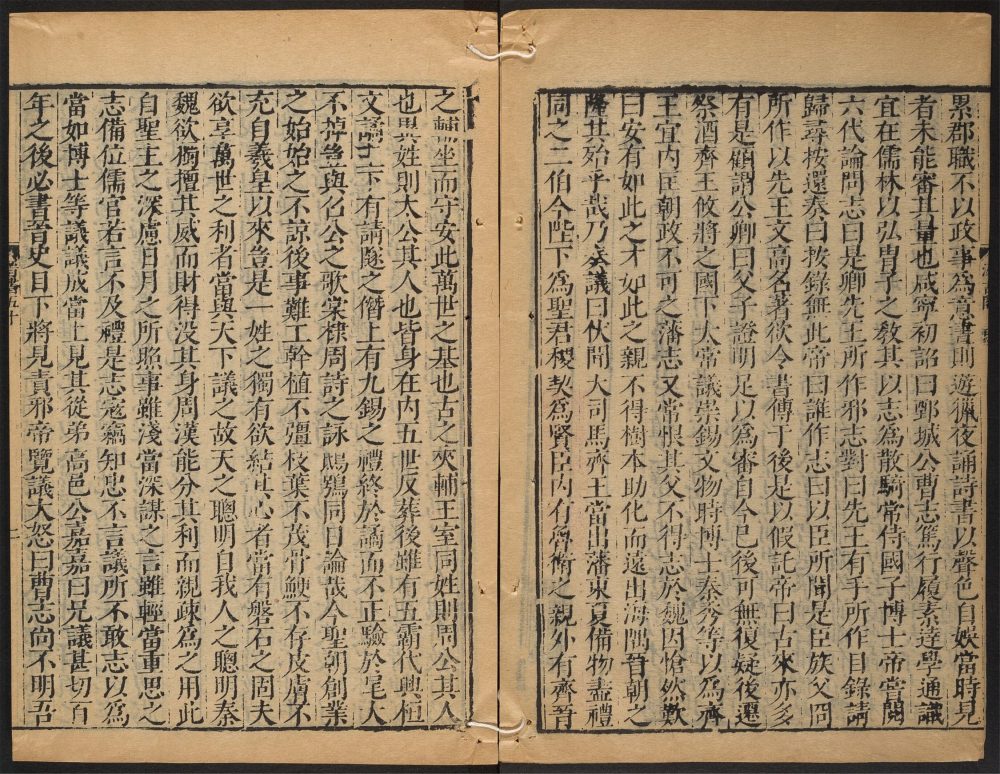 累郡職不以政事為意晝則遊獵夜誦詩書以聲色自娛當時見
者未能審其量也咸寧初詔曰鄄城公曹志篤行履素達學通識
宜在儒林以弘胄子之教其以志為散騎常侍國子博士帝嘗閱
六代論問志曰是卿先王所作邪志對曰先王有手所作目錄請
歸尋按還奏曰按錄無此帝曰誰作志曰以臣所聞是臣族父冏
所作以先王文高名著欲令書傳于後是以假託帝曰古來亦多
有是顧謂公卿曰父子證明足以為審自今已後可無復疑後遷
祭酒齊王攸將之國下太常議崇錫文物時博士秦秀等以為齊
王宜內匡朝政不可之藩志又常恨其父不得志於魏因愴然歎
曰安有如此之才如此之親不得樹本助化而遠出海隅晉朝之
隆其殆乎哉乃奏議曰伏聞大司馬齊王當出藩東夏備物盡禮
同之二伯今陛下為聖君稷契為賢臣內有魯衛之親外有齊晉
之輔坐而守安此萬世之基也古之夾輔王室同姓則周公其人
也異姓則太公其人也皆身在內五世反葬後雖有五霸代興桓
文譎主下有請隧之僭上有九錫之禮終於譎而不正驗於尾大
不掉豈與召公之歌棠棣周詩之詠鴟鴞同日論哉今聖朝創業
之始始之不諒後事難工幹植不彊枝葉不茂骨鯁不存皮膚不
充自羲皇以來豈是一姓之獨有欲結其心者當有磐石之固夫
欲享萬世之利者當與天下議之故天之聰明自我人之聰明秦
魏欲獨擅其威而財得沒其身周漢能分其利而親疎為之用此
自聖主之深慮日月之所照事雖淺當深謀之言雖輕當重思之
志備位儒官若言不及禮是志寇竊知忠不言議所不敢志以為
當如博士等議議成當上見其從弟高邑公嘉嘉曰兄議甚切百
年之後必書晉史目下將見責邪帝覽議大怒曰曹志尚不明吾